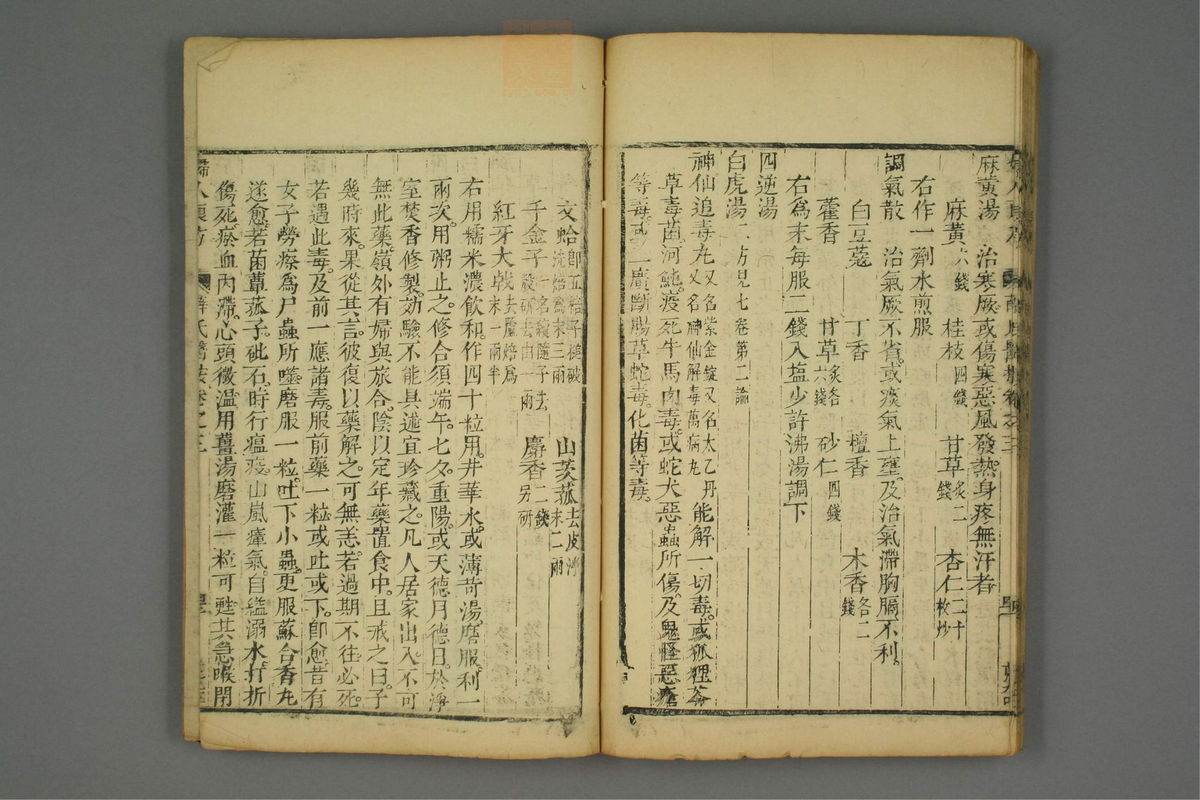 麻黃湯 治寒厥或傷寒惡風發熱身疼無汗者
麻黃六錢 桂枝四錢 甘草炙二錢 杏仁二十枚炒
右作一劑水煎服
調氣散 治氣厥不省或痰氣上壅及治氣滯胸膈不利
白豆蔻 丁香 檀香 木香各二錢
藿香 甘草炙各六錢 砂仁四錢
右爲末每服二錢入塩少許沸湯調下
四逆湯
白虎湯二方見七卷第二論
神仙追毒丸又名紫金錠又名太乙丹又名神仙解毒萬病丸 能解一切毒或狐狸
草毒菌河鮑疫死牛馬肉毒或蛇犬惡蟲所傷及鬼怪惡瘡
等毒 廣斷腸草蛇毒化菌等毒
文蛤即五棓子槌破洗焙爲末三兩 山茨菰去皮淨末二兩
千金子一名續隨子去殼研去由一兩 麝香二錢另研
紅牙大戟去蘆焙爲末一兩半
右用糯米濃飲和作四十粒用井華水或薄苛湯磨服利一
兩次用粥止之修合須端午七夕重陽或天德月德日於淨
室焚香修製効驗不能具述宜珍藏之凡人居家出入不可
無此藥嶺外有婦與旅合陰以定年藥置食中且戒之日子
幾時來果從其言彼復以藥解之可無恙若過期不往必死
若遇此毒及前一應諸毒服前藥一粒或吐或下即愈昔有
女子勞瘵爲尸蟲所噬磨服一粒吐下小蟲更服蘇合香丸
遂愈若菌蕈菰子砒石時行瘟疫山嵐瘴氣自縊溺水打折
傷死瘀血內滯心頭微溫用薑湯磨灌一粒可甦其急喉閉
婦人良方 薛氏醫按卷之三